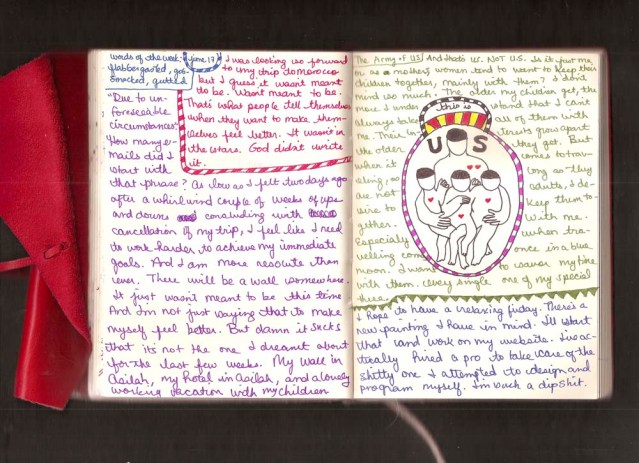 words of the week:
flabbergasted, gob-
smacked, gutted
june 17
I was looking so forward
to my trip to morocco
but I guess it wasn't meant
to be. Wasn't meant to be.
That's what people tell themselves
when they want to make them-
selves feel better. It wasn't in
the stars. God didn't write
it.
"Due to un-
foreseeable
circumstances."
How many e-
mails did I
start with
that phrase? As low as I felt two days ago
after a whirlwind couple of weeks of ups
and downs concluding with
cancellation of my trip, I feel like I need
to work harder to achieve my immediate
goals. And I am more resolute than
ever. There will be a wall somewhere.
It just wasn't meant to be this time
And I'm not just saying that to make
myself feel better. But damn it sucks
that it's not the one I dreamt about
for the last few weeks. My wall in
Asilah, my hotel in Asilah, and a lovely
working vacation with my children
The Army of US! And that's US. NOT U.S. Is it just me
or as mothers women tend to want to keep their
children together, mainly with them? I don't
mind so much. The older my children get, the
more I understand that I can't
always take all of them with
me. Their interests grow apart
the older they get. But
when it comes to trav-
eling, as long as they
are not adults, I de-
sire to keep them to-
gether. With me.
Especially when tra-
velling comes once in a blue
moon. I want to savor my time
with them. Every single one of my special
three.
this is
US
I hope to have a relaxing friday. There's a
new painting I have in mind. I'll start
that and work on my website. I've ac-
tically hired a pro to take care of the
shitty one I attempted to design and
program myself. I'm such a dipshit.